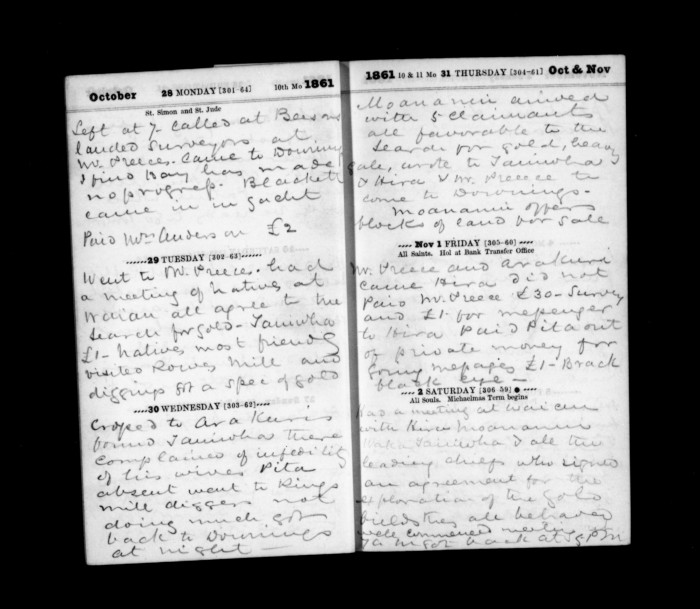 October 28 MONDAY [301-64] 10th Mo 1861
St. Simon and St. Jude
Left at 7 - called at Beesons
landed Surveyors at
Mr Preeces. Came to Downings
I find Kay has made
no progress. Blackett
came in in yacht
Paid Mrs Anderson £2
29 TUESDAY [302-63]
Went to Mr. Preece. had
a meeting of Natives at
Waiau all agree to the
search for gold - Taniwha
£1 - Natives most friendly
visited Rowes Mill and
diggings got a spec of gold
30 WEDNESDAY [303-62]
Crossed to Ara Kuris
found Taniwha there
complained of infidelity
of his wives Pita
absent went to Rings
mill diggers not
doing much got
back to Downings
at night
1861 10 & 11 Mo 31 THURSDAY [304-61] Oct & Nov
Moananui arrived
with 5 claimants
all favorable to the
search for gold, heavy
gale, wrote to Taniwha
& Hira & Mr. Preece to
come to Downings.
Moananui offers
blocks of land for sale
Nov 1 FRIDAY [305-60]
All Saints. Hol at Bank Transfer Office
Mr. Preece and Arakuri
came Hira did not
Paid Mr. Preece £30 - Survey
and £1 for messenger
to Hira Paid Pita out
of private money for
going messages £1 - Brack
black eye -
2 SATURDAY [306-59]
All Souls. Michaelmas Term begins
had a meeting at Waiau
with Hira Moananui
Taniwha & all the
leading chiefs who signed
an agreement for the
exploration of the gold
fields they all behaved
well, commenced meeting
got back at PM